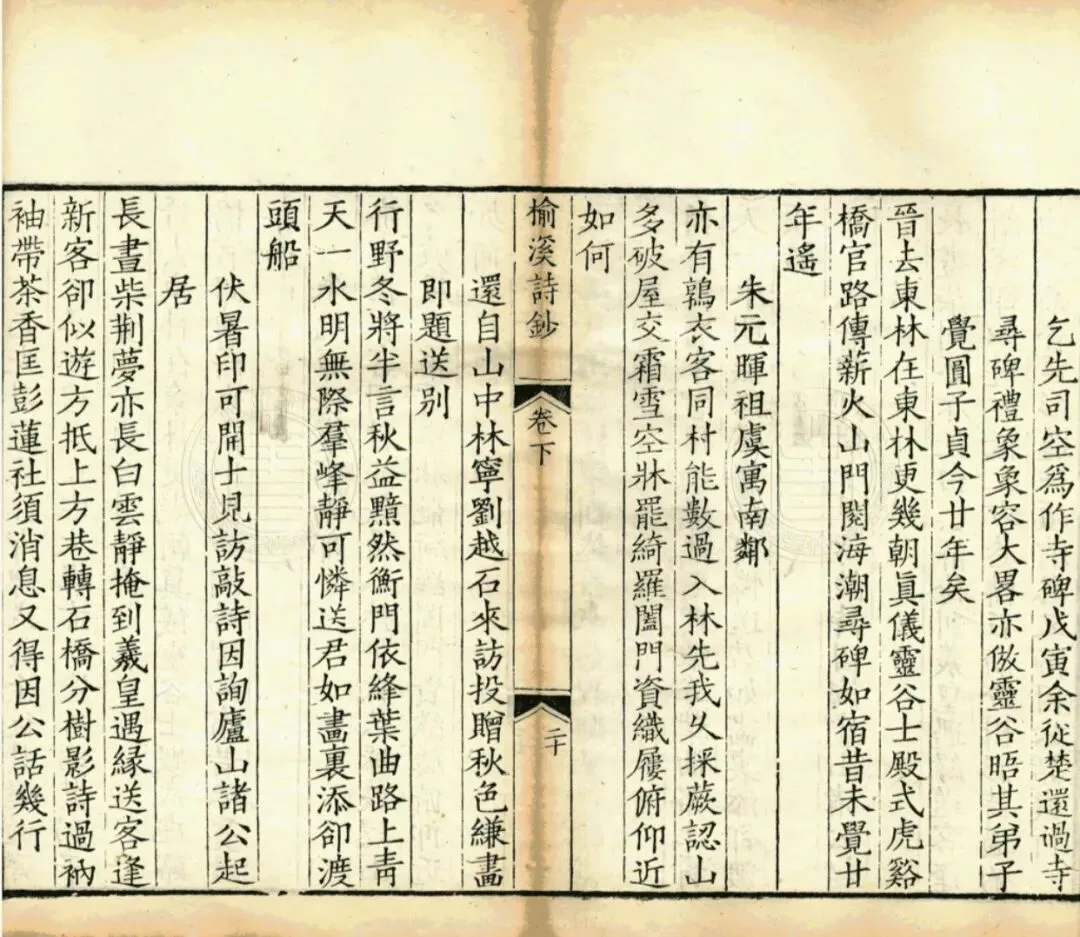 乞先司空爲作寺碑戊寅余從楚還過寺
尋碑禮象象容大畧亦倣靈谷晤其弟子
覺圓子貞今廿年矣
晉去東林在東林更幾朝眞儀靈谷士殿式虎谿
橋官路傳薪火山門閱海潮尋碑如宿昔未覺廿
年遙
朱元暉祖虞寓南鄰
亦有鶉衣客同村能數過入林先我久採蕨認山
多破屋交霜雪空牀罷綺羅闔門資織屨俯仰近
如何
榆溪詩鈔
卷下
二十
還自山中林寧劉越石來訪投贈秋色縑畵
即題送别
行野冬將半言秋益黯然衡門依絳葉曲路上青
天一水明無際羣峰靜可憐送君如畵裏添卻渡
頭船
伏暑印可開士見訪敲詩因詢廬山諸公起
居
長晝柴荆夢亦長白雲靜掩到羲皇遇緣送客逢
新客卻似遊方抵上方巷轉石橋分樹影詩過衲
袖帶茶香匡彭蓮社須消息又得因公話幾行